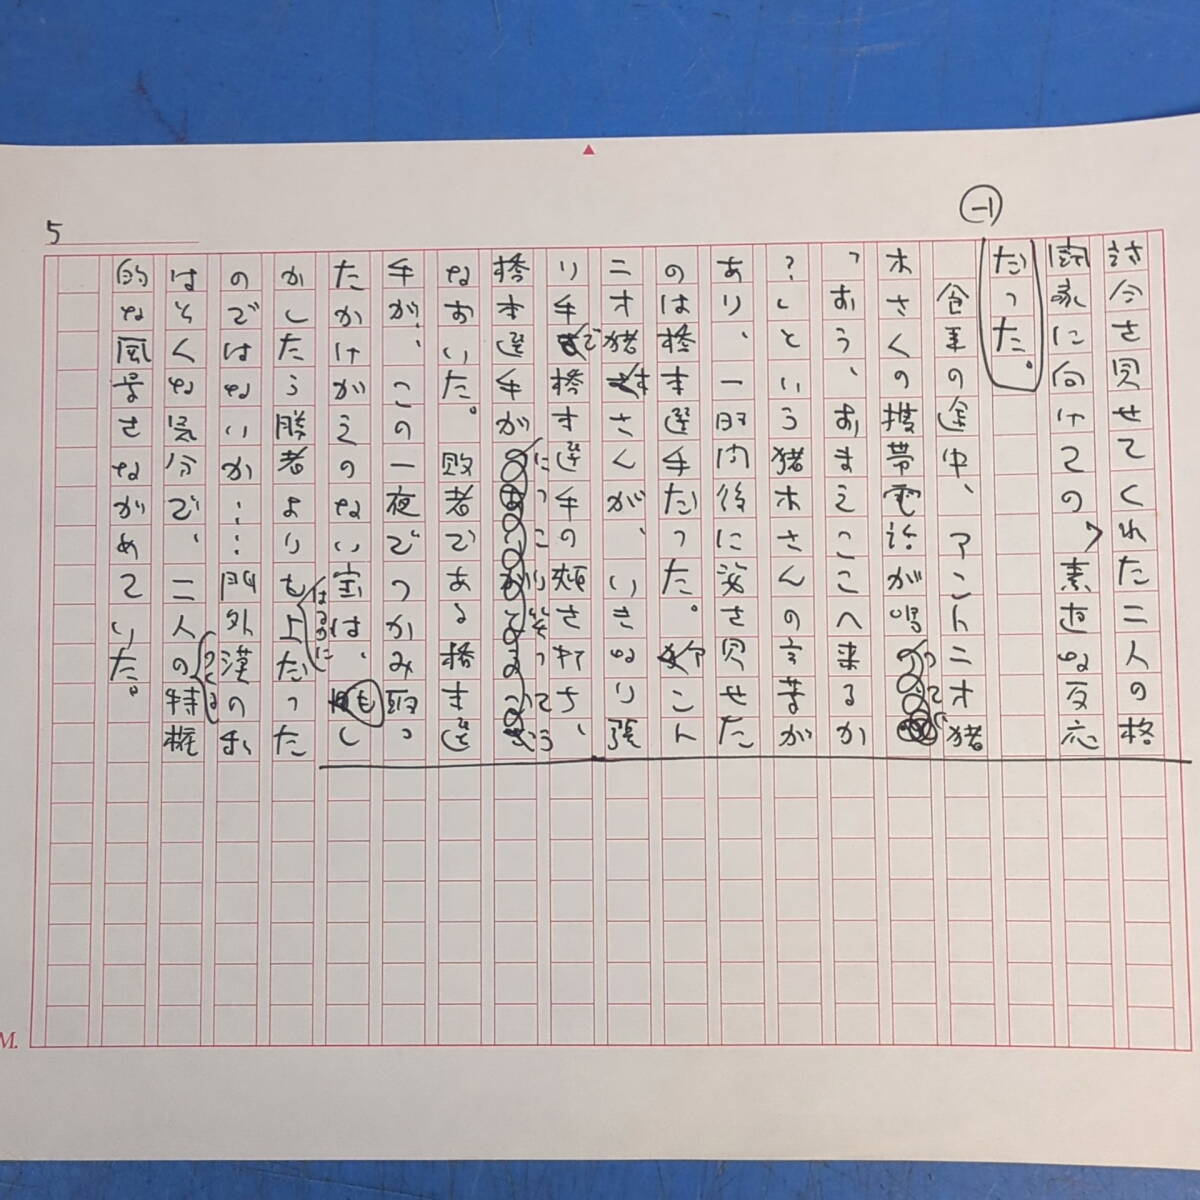 5
-1
討会を見せてくれた二人の格
闘家に向けての素直な反応
だった。
食事の途中、アントニオ猪
木さんの携帯電話が鳴って
「おう、おまえここへ来るか
?」という猪木さんの言葉が
あり、一時間後に姿を見せた
のは橋本選手だった。アン
ニオ猪木さんが、いきなり張
り手で橋本選手の頬を打ち、
橋本選手がにっこり笑っている
なおいた。敗者である橋本選
手が、この一夜でつかみ取っ
たかけがえのない宝は、もし
かしたら勝者よりもはるかに上だった
のではないか……門外漢の私
はそんな気分で、二人のつくる特権
的な風景をながめていた。
M.